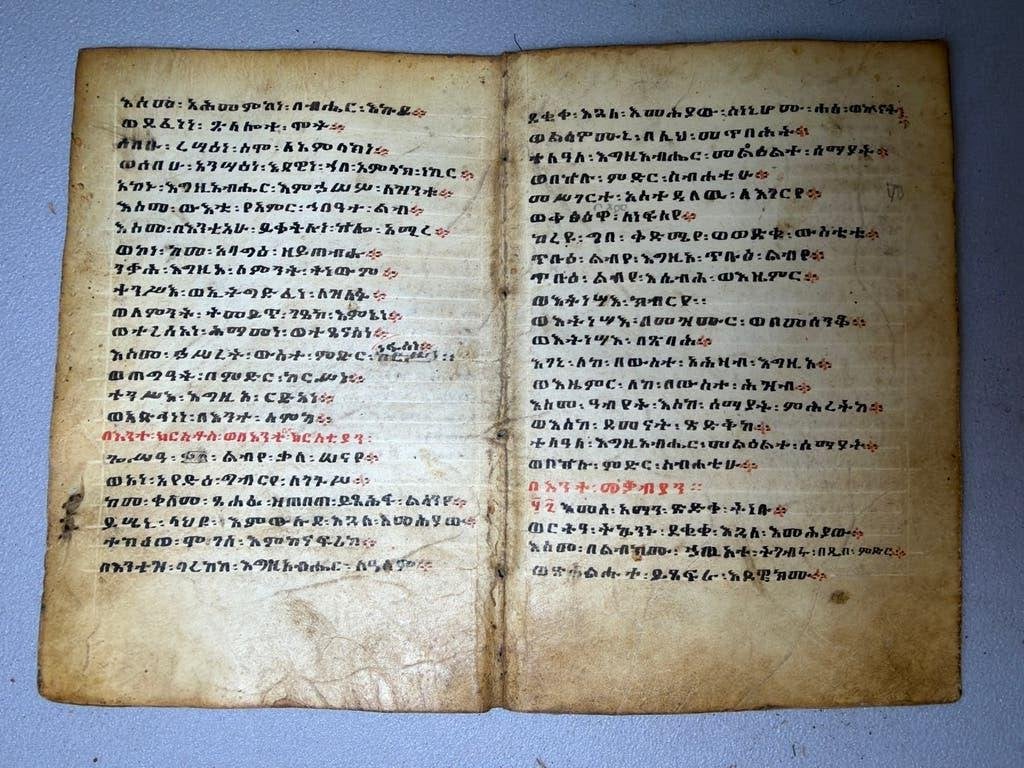 እስመ፡ አሕመምከነ፡ በብሔር፡ እኩይ
ወደፈነነ፡ ጽላሎተ፡ ሞት
ሶበሁ፡ ረሣዕነ፡ ስሞ፡ ለአምላክነ
ወሶበሁ፡ አንሣዕነ፡ እደዊነ፡ ኀበ፡ አምላክ፡ ነኪር
አኮኑ፡ እግዚአብሔር፡ እምኃሠሦ፡ ለዝንቱ
እስመ፡ ውእቱ፡ የአምር፡ ኅቡዓተ፡ ልብ
እስመ፡ በእንቲአከ፡ ይቀትሉነ፡ ኵሎ፡ አሚረ
ወኮነ፡ ከመ፡ አባግዕ፡ ዘይጠብሑ
ንቃህ፡ እግዚኦ፡ ለምንት፡ ትነውም
ተንሥእ፡ ወኢትግድፈነ፡ ለዝሉፉ
ወለምንት፡ ትመይጥ፡ ገጸከ፡ እምኔነ
ወትረስአነ፡ ሕማመነ፡ ወተጽናሰነ
እስመ፡ ኃሥረት፡ ውስተ፡ ምድር፡ ነፍስነ
ወጠግዓት፡ በምድር፡ ከርሥነ
ተንሥእ፡ እግዚኦ፡ ርድአነ
ወአድኅነነ፡ በእንተ፡ ስምከ
በእንተ፡ ክርስቶስ፡ ወበእንተ፡ ክርስቲያን፡
ጐሥዓ፡ ልብየ፡ ቃለ፡ ሠናየ
ወአነ፡ አየድዕ፡ ግብርየ፡ ለንጉሥ
ከመ፡ ቀለመ፡ ጸሐፊ፡ ዘጠበጠ፡ ይጽሕፍ፡ ልሳንየ
ይሤኒ፡ ላህዩ፡ እምውሉደ፡ እጓለ፡ እመሕያው
ተክዕወ፡ ሞገስ፡ እምከናፍሪከ
በእንተዝ፡ ባረከከ፡ እግዚአብሔር፡ ለዓለም
ደቂቀ፡ እጓለ፡ እመሕያው፡ ስነኒሆሙ፡ ሐፅ፡ ወኵናት
ወልሳኖሙኒ፡ በሊህ፡ መጥባሕት
ተለዓለ፡ እግዚአብሔር፡ መልዕልተ፡ ሰማያት
ወበኵሉ፡ ምድር፡ ስብሐቲሁ
መሥገርተ፡ አስተዳለዉ፡ ለእገርየ
ወቆፅዕዋ፡ ለነፍስየ
ከረዩ፡ ግበ፡ ቅድሜየ፡ ወወድቁ፡ ውስቴቱ
ጥቡዕ፡ ልብየ፡ እግዚኦ፡ ጥቡዕ፡ ልብየ
ጥቡዕ፡ ልብየ፡ እሴብሕ፡ ወእዜምር
ወእትነሣእ፡ ክብርየ፡፡
ወእትነሣእ፡ በመዝሙር፡ ወበመሰንቆ
ወእትነሣእ፡ በጽባሕ
እገኒ፡ ለከ፡ በውስተ፡ አሕዛብ፡ እግዚኦ
ወእዜምር፡ ለከ፡ በውስተ፡ ሕዝብ
እስመ፡ ዓብየት፡ እስከ፡ ሰማያት፡ ምሕረትከ
ወእስከ፡ ደመናት፡ ጽድቅከ
ተለዓለ፡ እግዚአብሔር፡ መልዕልተ፡ ሰማያት
ወበኵሉ፡ ምድር፡ ስብሐቲሁ
በእንተ፡ መቃብያን፡፡
፶፯ እመሰ፡ አማን፡ ጽድቀ፡ ትነቡ
ወርትዓ፡ ትኴንኑ፡ ደቂቀ፡ እጓለ፡ እመሕያው
እስመ፡ በልብክሙ፡ ኃጢአተ፡ ትገብሩ፡ በዲበ፡ ምድር
ወጽልሑተ፡ ይፄፍራ፡ እደዊክሙ